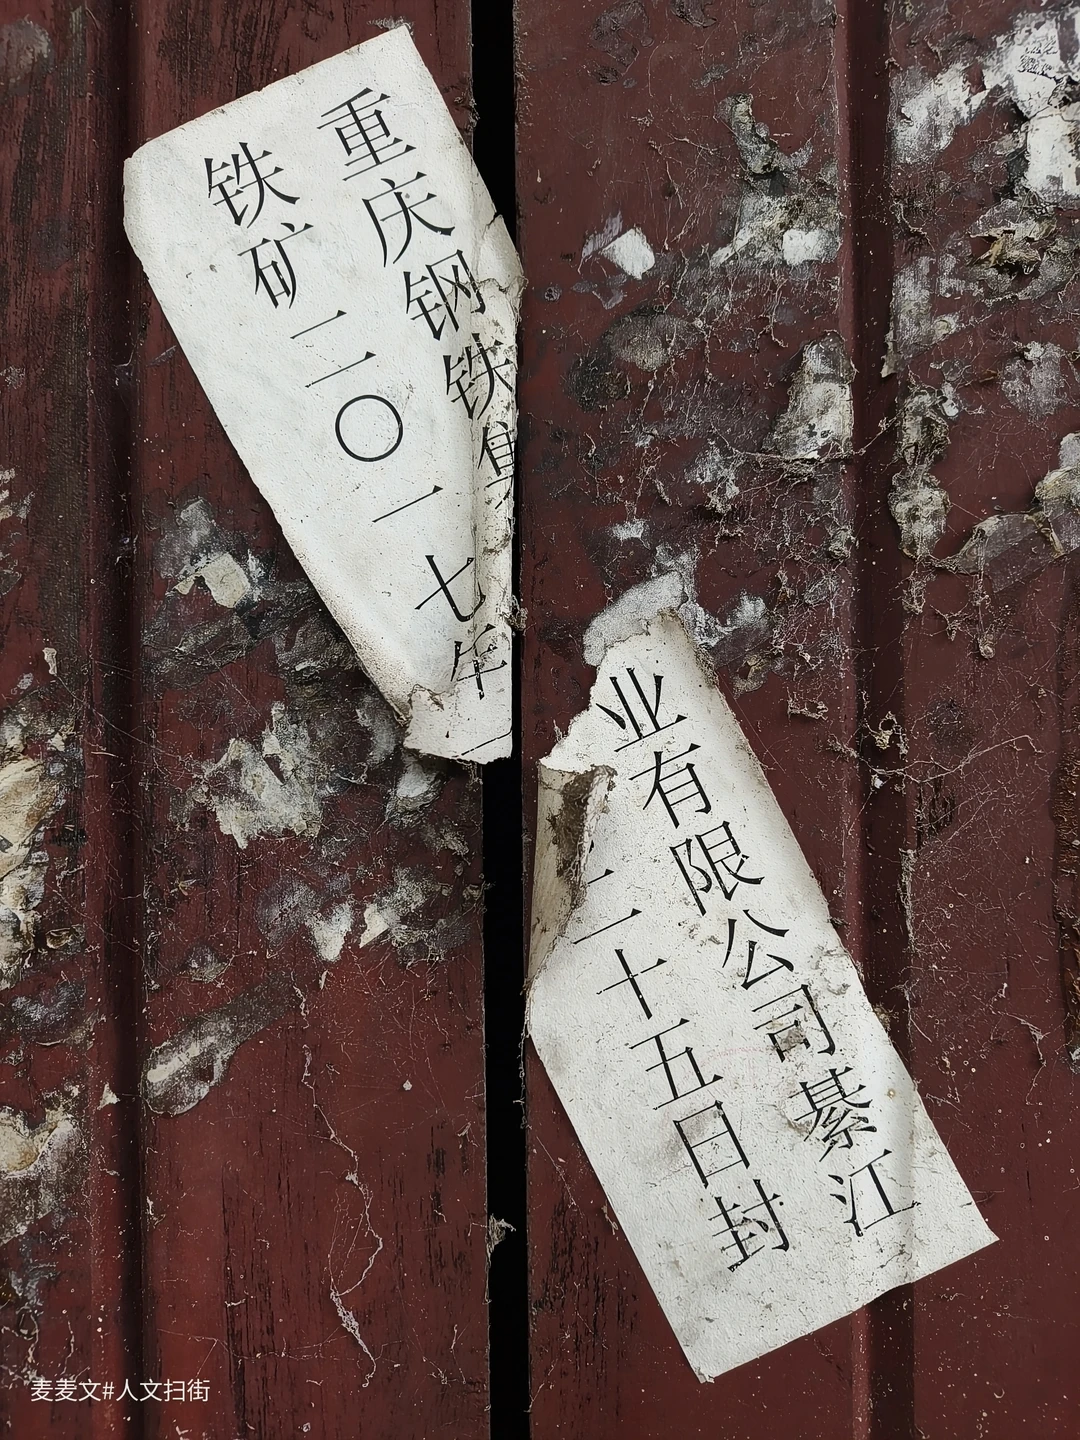 重庆钢铁集
铁矿二〇一七年
业有限公司綦江
二十五日封
麦麦文#人文扫街